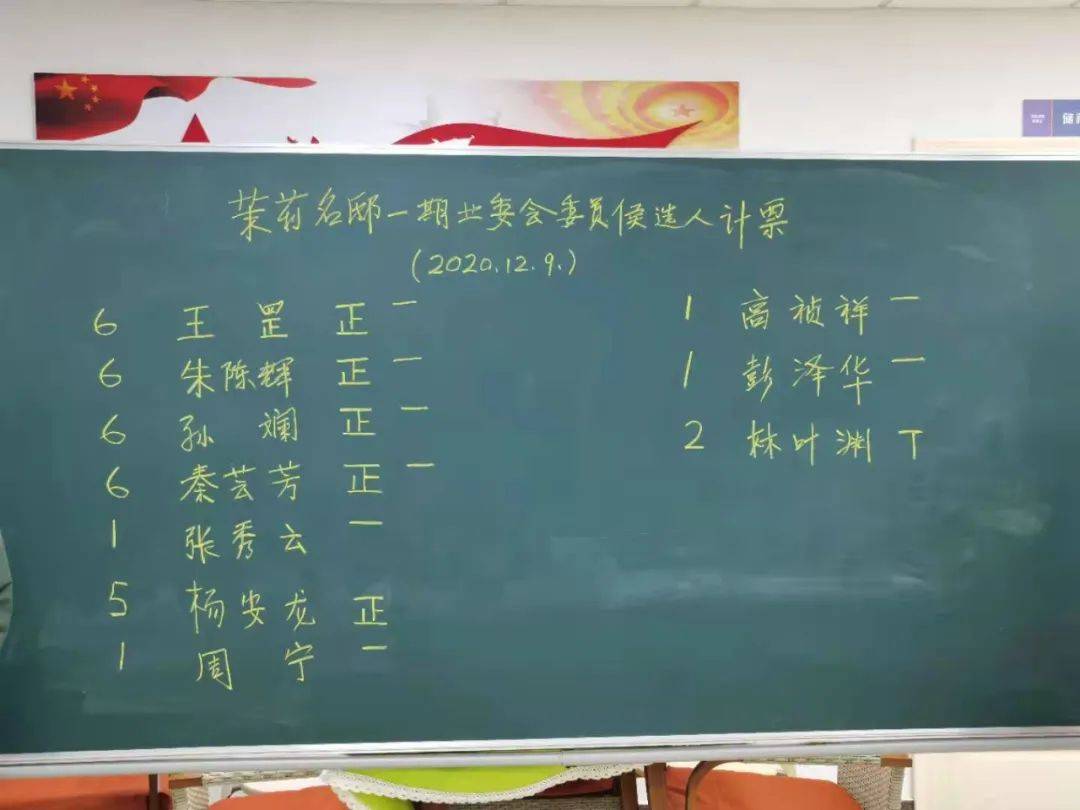 茉莉名邸一期业委会委员侯选人计票
(2020.12.9.)
6 王罡 正一
6 朱陈辉 正一
6 孙斓 正一
6 秦芸芳 正一
1 张秀云 一
5 杨安龙 正
1 周宁 一
1 高祯祥 一
1 彭泽华 一
2 林叶渊 丅